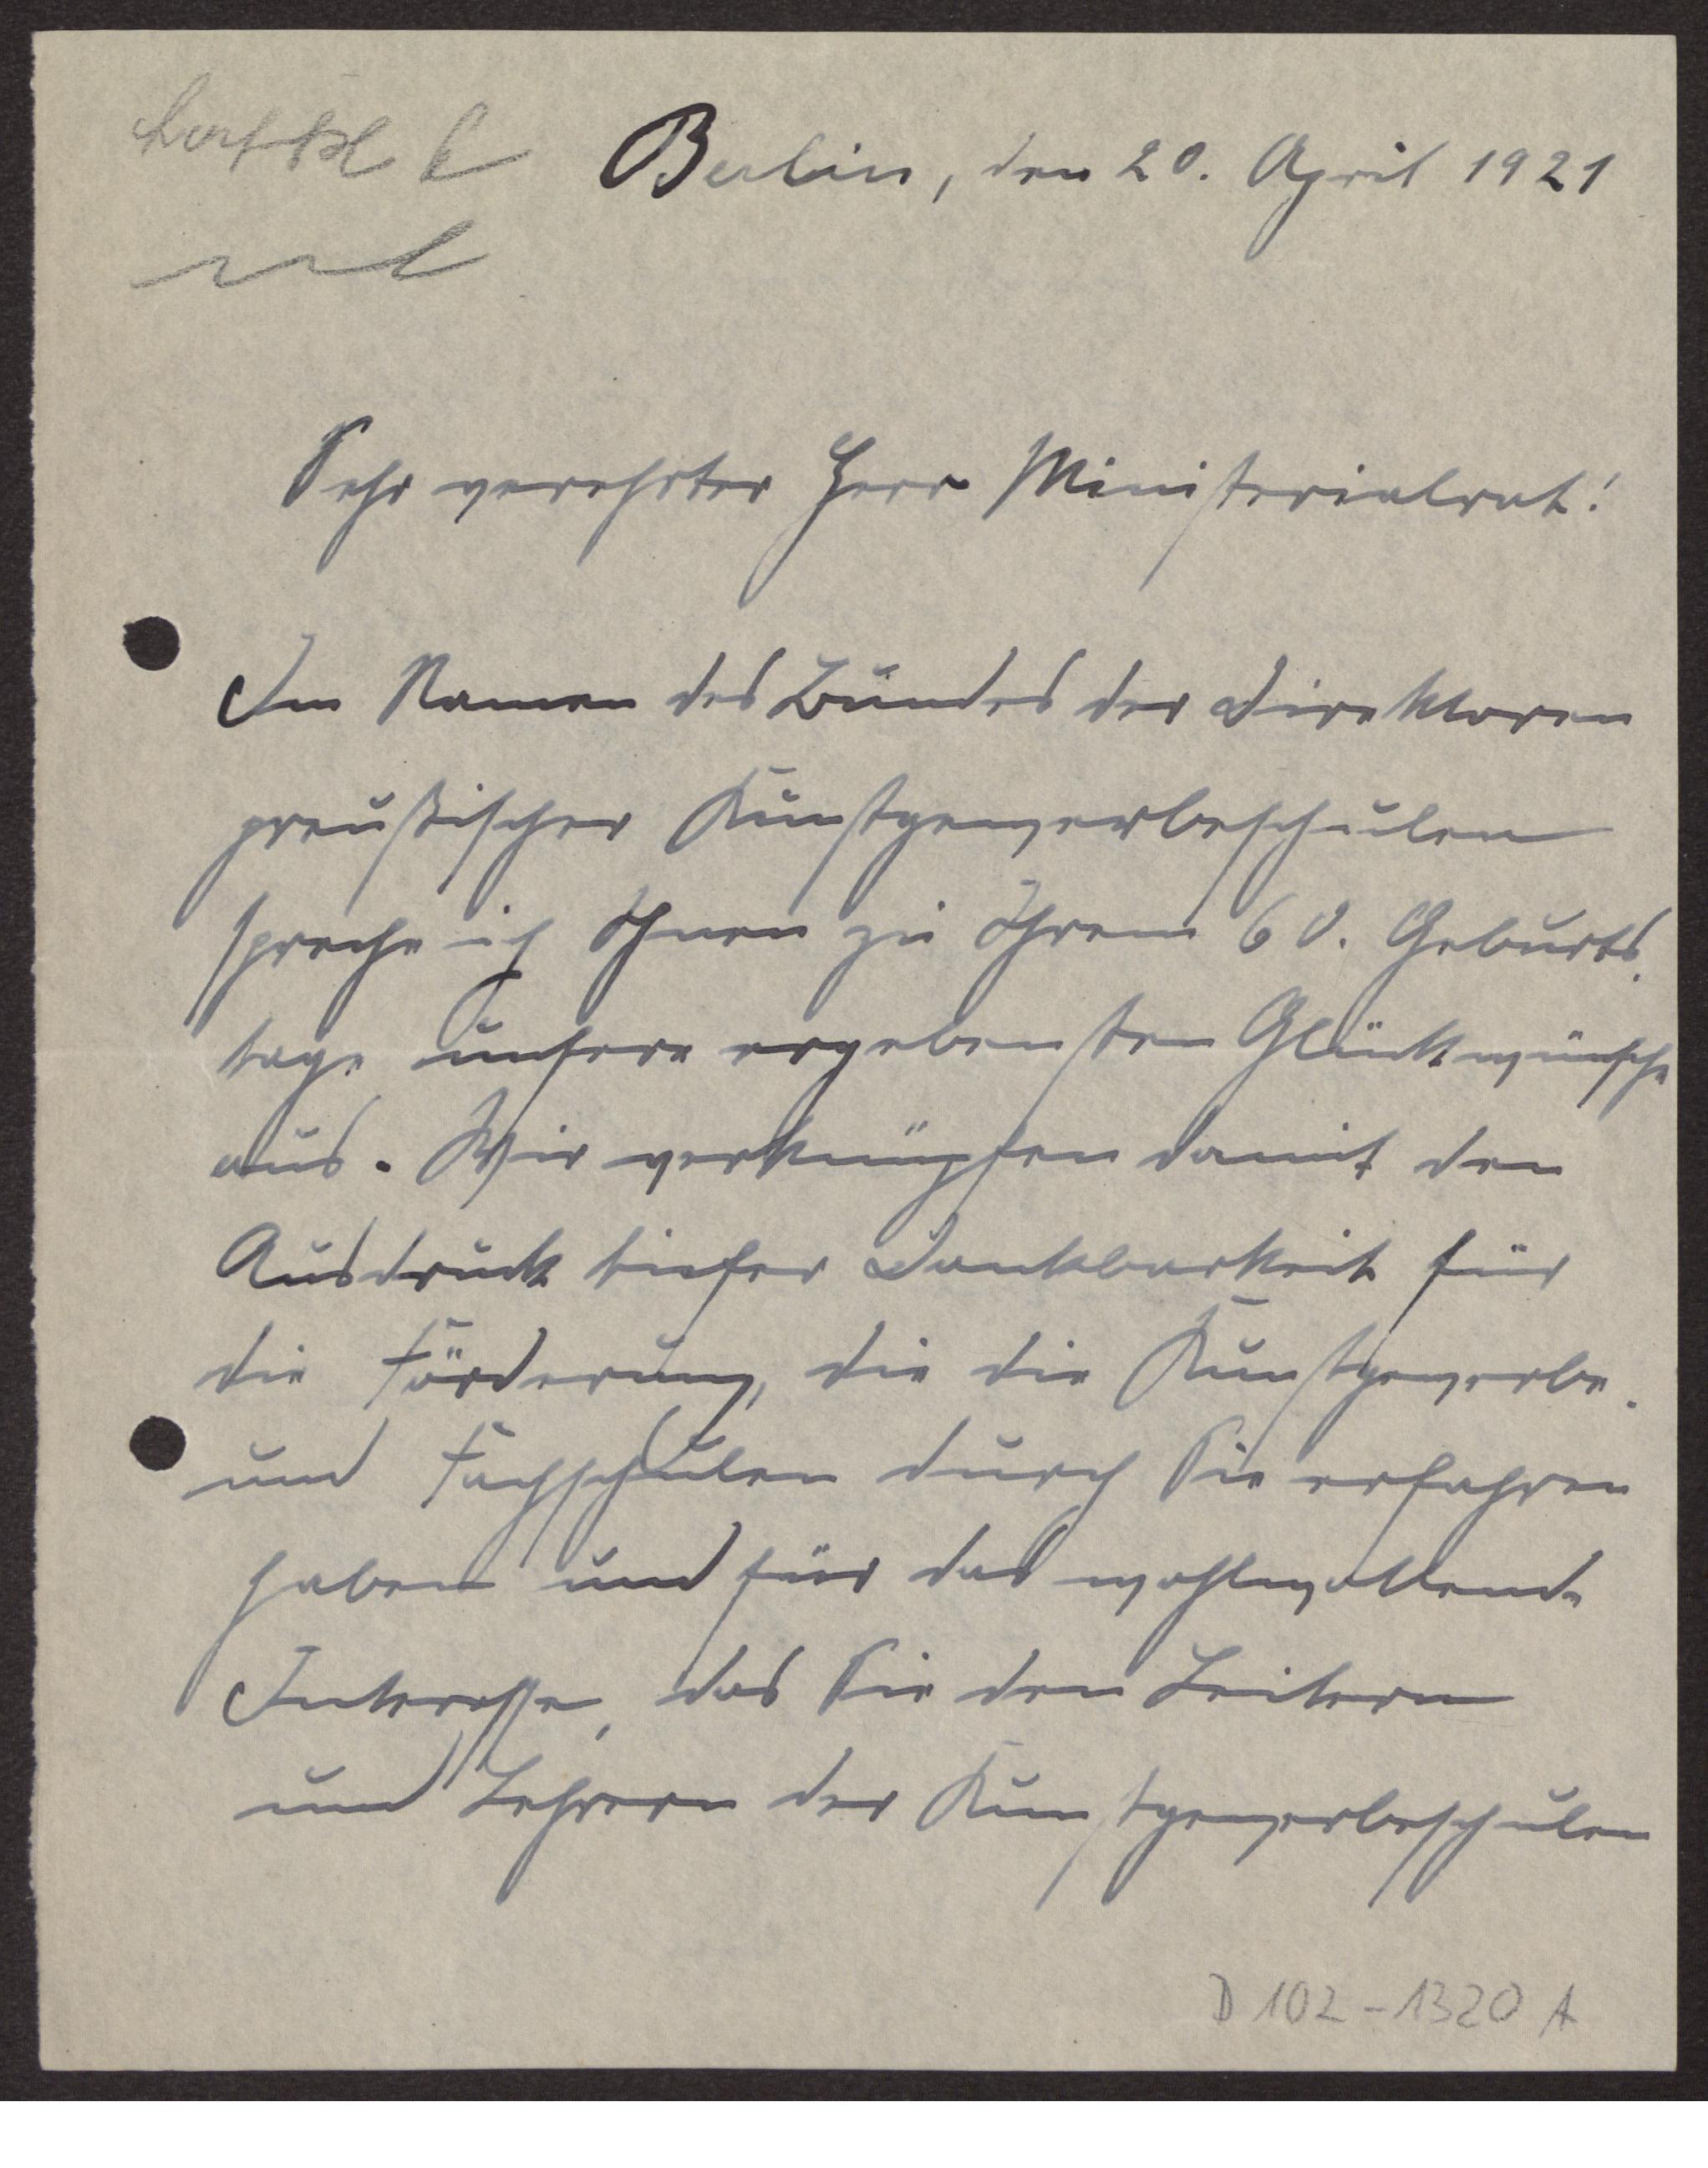 Berlin, den 20. April 1921
Sehr verehrter Herr Ministerialrat!
Im Namen des Bundes der Direktoren
preußischer Kunstgewerbeschulen
spreche ich Ihnen zu Ihrem 60. Geburts-
tage unsere ergebensten Glückwünsche
aus. Wir verknüpfen damit den
Ausdruck tiefer Dankbarkeit für
die Förderung, die die Kunstgewerbe-
und Fachschulen durch Sie erfahren
haben und für das wohlwollende
Interesse, das Sie den Leitern
und Lehrern der Kunstgewerbeschulen
D 102-1320 A